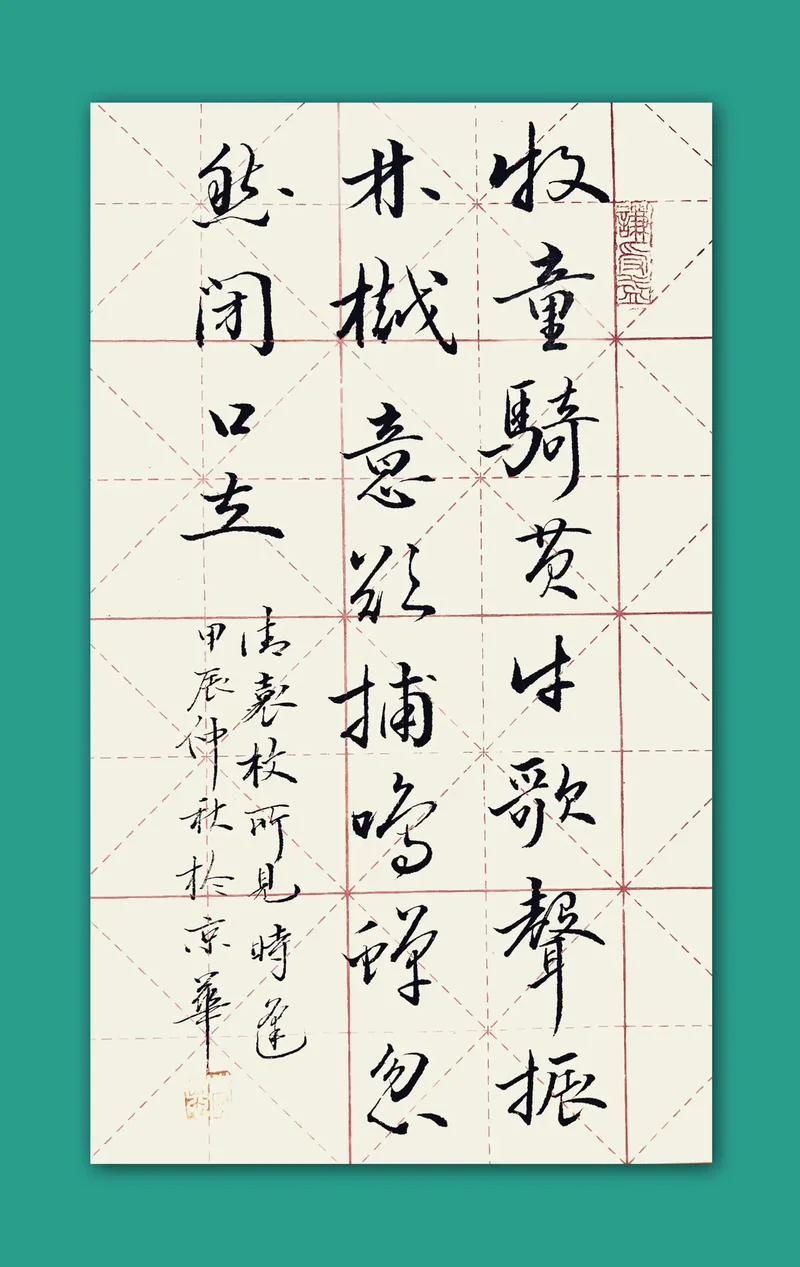 牧童騎黄牛歌聲振
林樾意欲捕鳴蟬忽
然閉口立
清袁枚所見時逢
甲辰仲秋於京華
謙受益